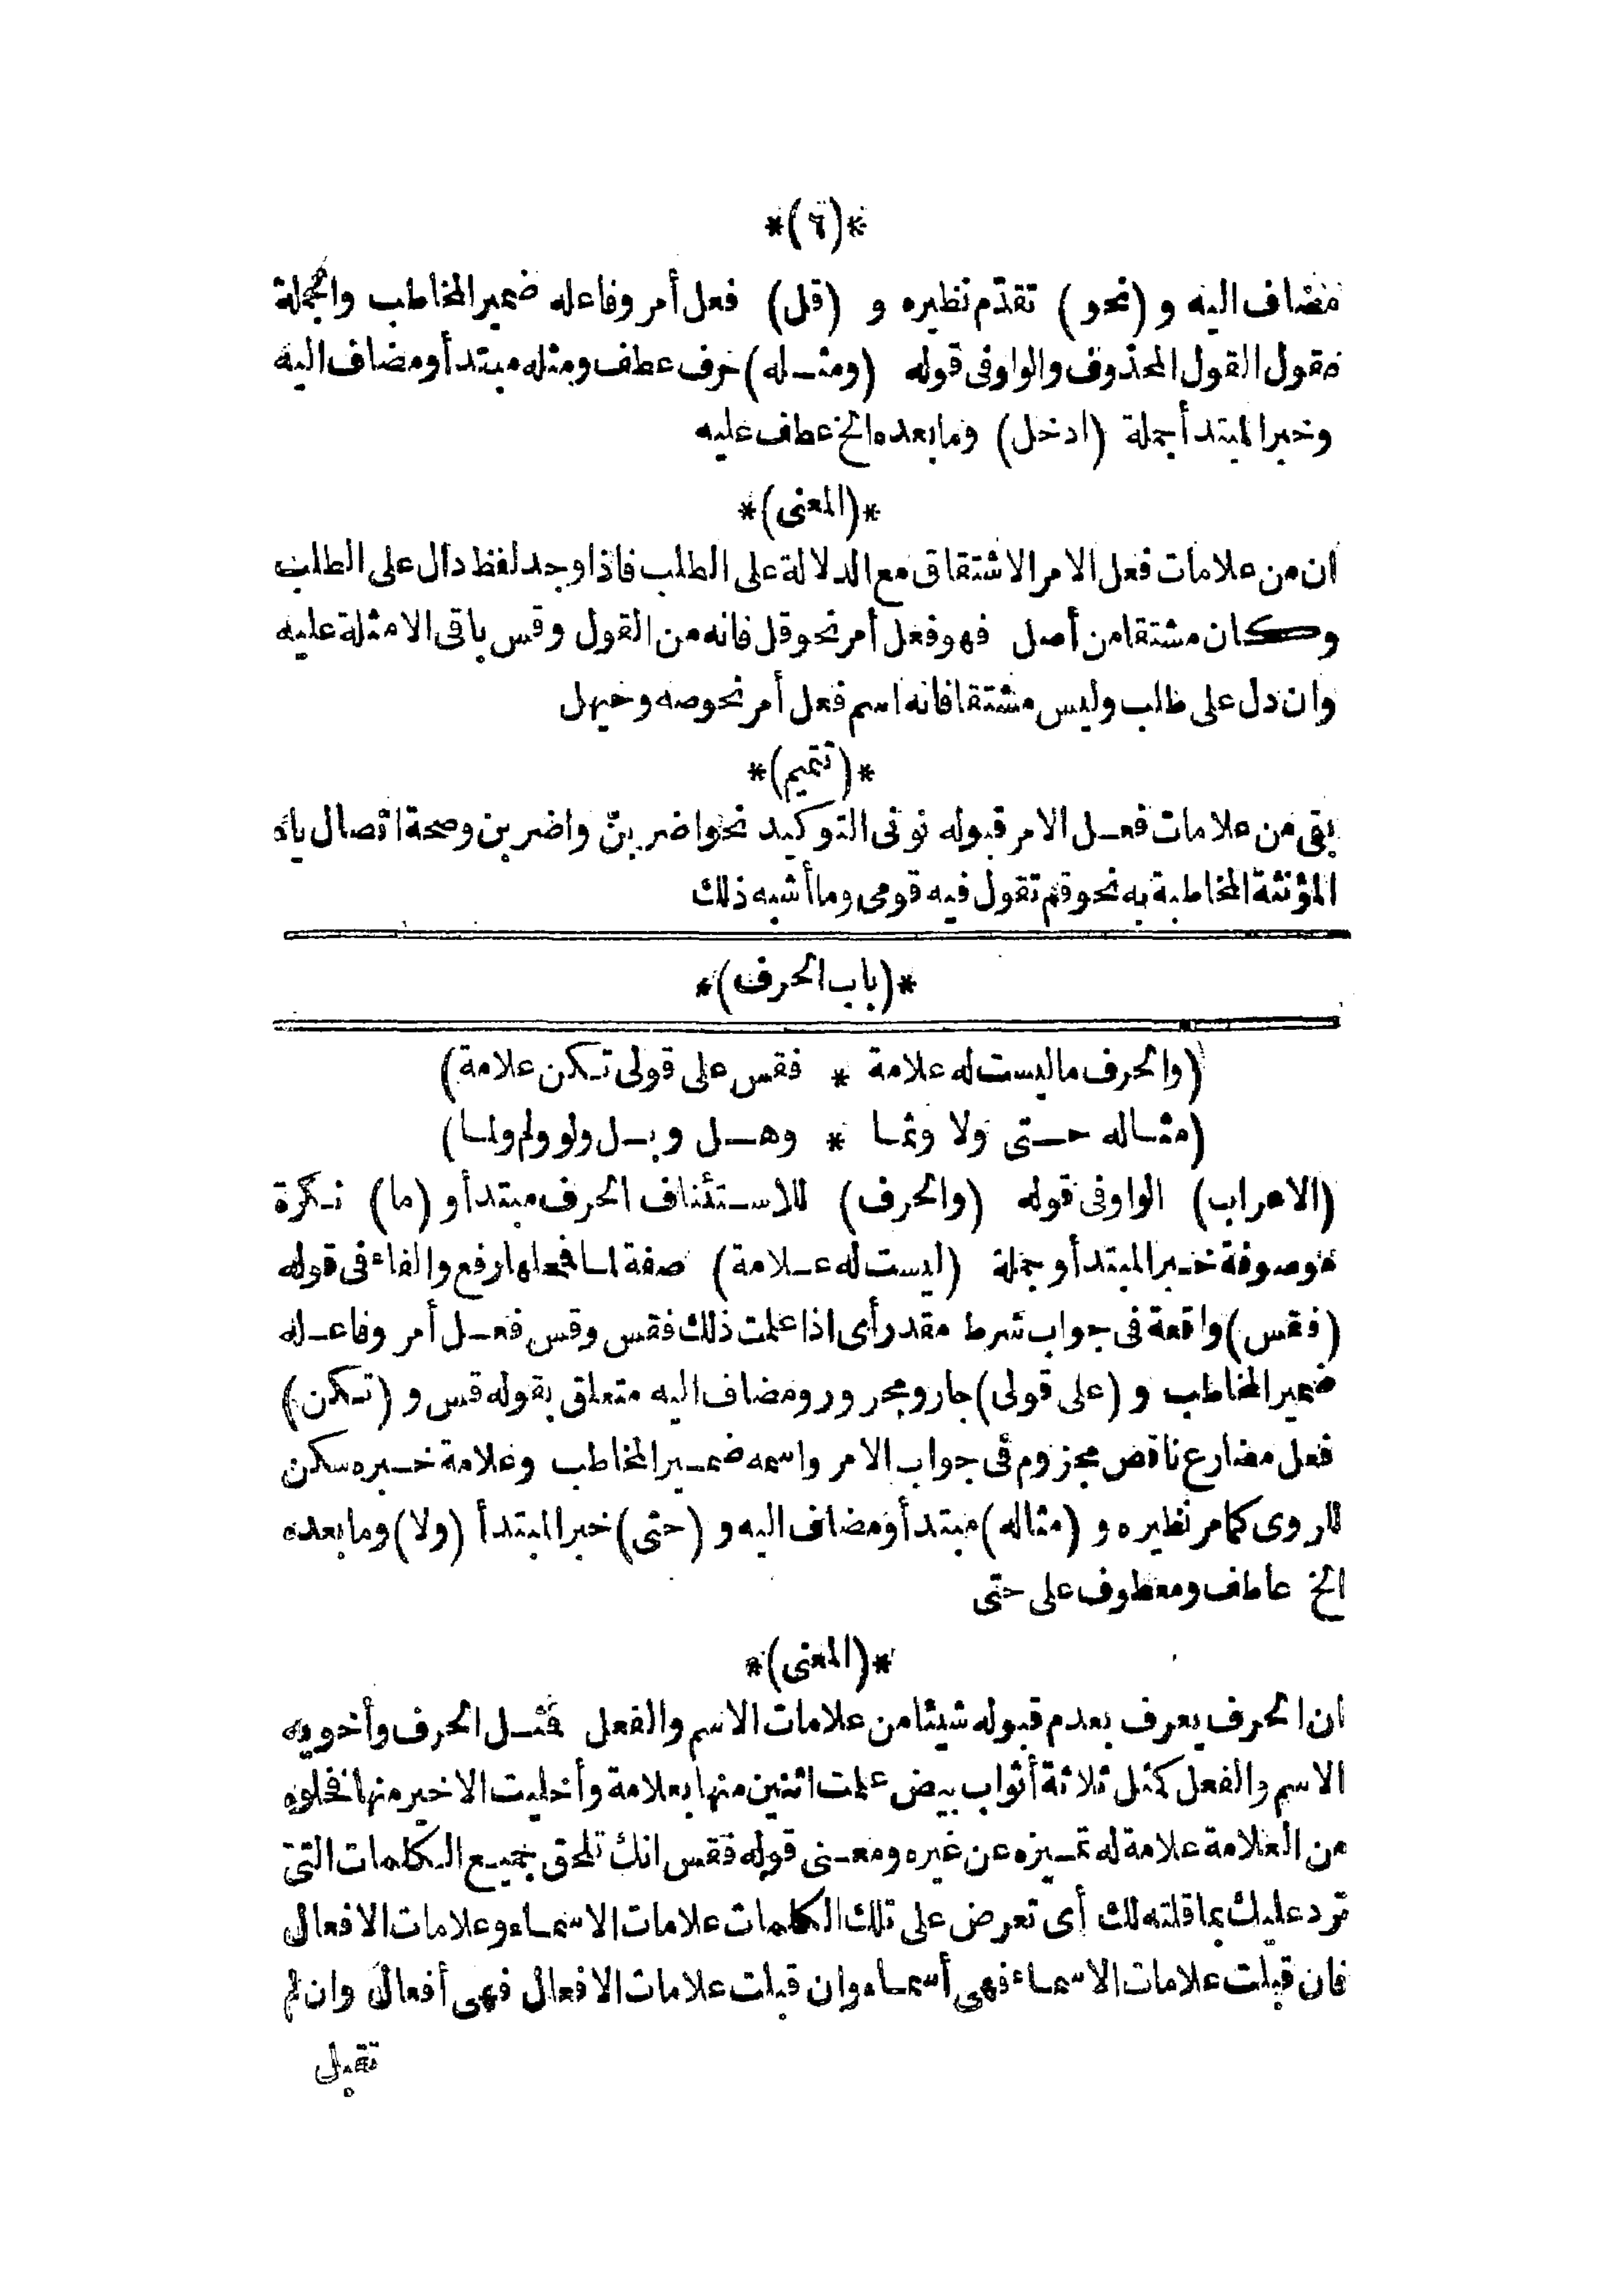 *(٦)*
مضاف اليه و (نحو) تقدّم نظيره و (قل) فعل أمر وفاعله ضمير المخاطب والجملة
مقول القول المحذوف والواو فى قوله (ومثـله) حرف عطف ومثله مبتدأ ومضاف اليه
وخبر المبتدأ جملة (ادخل) وما بعده الخ عطف عليه
*(المعنى)*
ان من علامات فعل الامر الاشتقاق مع الدلالة على الطلب فاذا وجد لفظ دال على الطلب
وكان مشتقا من أصل فهو فعل أمر نحو قل فانه من القول وقس باقى الامثلة عليه
وان دل على طلب وليس مشتقا فانه اسم فعل أمر نحو صه وحيهل
*(تتميم)*
بقى من علامات فعـل الامر قبوله نونى التوكيد نحو اضربنّ واضربن وصحة اتصال ياء
المؤنثة المخاطبة به نحو قم تقول فيه قومى وما أشبه ذلك
*(باب الحرف)*
(والحرف ما ليست له علامة * فقس على قولى تـكن علامة)
(مثـاله حـتى ولا وثمـا * وهـل وبـل ولو ولم ولمـا)
(الاعراب) الواو فى قوله (والحرف) للاسـتئناف الحرف مبتدأ و (ما) نـكرة
موصوفة خـبر المبتدأ وجملة (ليست له عـلامة) صفة لمـا فمحلها رفع والفاء فى قوله
(فقس) واقعة فى جواب شرط مقدر أى اذا علمت ذلك فقس وقس فعـل أمر وفاعـله
ضمير المخاطب و (على قولى) جار ومجرور ومضاف اليه متعلق بقوله قس و (تـكن)
فعل مضارع ناقص مجزوم فى جواب الامر واسمه ضمـير المخاطب وعلامة خـبره سكن
للروى كما مر نظيره و (مثاله) مبتدأ ومضاف اليه و (حتى) خبر المبتدأ (ولا) وما بعده
الخ عاطف ومعطوف على حتى
*(المعنى)*
ان الحرف يعرف بعدم قبوله شيئا من علامات الاسم والفعل فمثـل الحرف وأخويه
الاسم والفعل كمثل ثلاثة أثواب بيض علمت اثنين منها بعلامة وأخليت الاخير منها فخلوه
من العلامة علامة له تمـيزه عن غيره ومعـنى قوله فقس انك تلحق بجميـع الـكلمات التى
ترد عليك بما قلته لك أى تعرض على تلك الكلمات علامات الاسمـاء وعلامات الافعال
فان قبلت علامات الاسمـاء فهى أسمـاء وان قبلت علامات الافعال فهى أفعال وان لم
تقبل